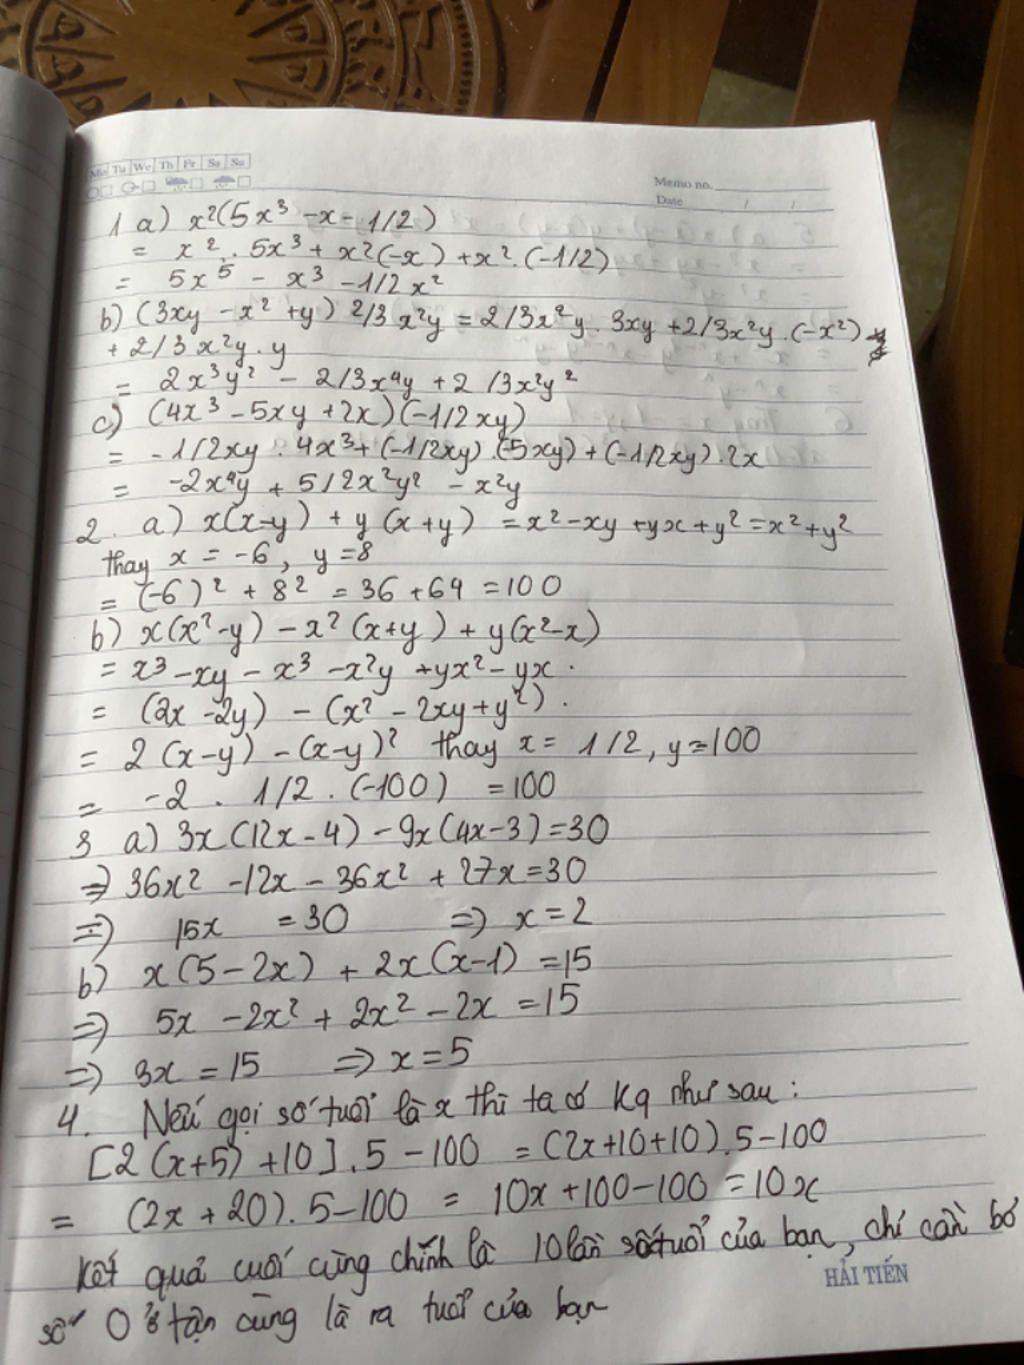 Mo Tu We Th Fr Sa Su
Memo no.
Date / /
1 a) x²(5x³ -x - 1/2)
= x². 5x³ + x²(-x) + x².(-1/2)
= 5x⁵ - x³ - 1/2x²
b) (3xy - x² + y) 2/3 x²y = 2/3x²y. 3xy + 2/3x²y.(-x²)
+ 2/3 x²y. y
= 2x³y² - 2/3x⁴y + 2/3x²y²
c) (4x³ - 5xy + 2x)(-1/2xy)
= -1/2xy . 4x³ + (-1/2xy).(-5xy) + (-1/2xy).2x
= -2x⁴y + 5/2x²y² - x²y
2. a) x(x-y) + y(x+y) = x² - xy + yx + y² = x² + y²
thay x = -6, y = 8
= (-6)² + 8² = 36 + 64 = 100
b) x(x²-y) - x²(x+y) + y(x²-x)
= x³ - xy - x³ - x²y + yx² - yx.
= (2x - 2y) - (x² - 2xy + y²).
= 2(x-y) - (x-y)² thay x = 1/2, y = 100
= -2 . 1/2 . (-100) = 100
3 a) 3x(12x - 4) - 9x(4x - 3) = 30
=> 36x² - 12x - 36x² + 27x = 30
=> 15x = 30 => x = 2
b) x(5 - 2x) + 2x(x-1) = 15
=> 5x - 2x² + 2x² - 2x = 15
=> 3x = 15 => x = 5
4. Nếu gọi số tuổi là x thì ta có kq như sau:
[2(x+5) + 10].5 - 100 = (2x+10+10).5 - 100
= (2x + 20).5 - 100 = 10x + 100 - 100 = 10x
Kết quả cuối cùng chính là 10 lần số tuổi của bạn, chỉ cần bỏ
HẢI TIẾN
số 0 ở tận cùng là ra tuổi của bạn